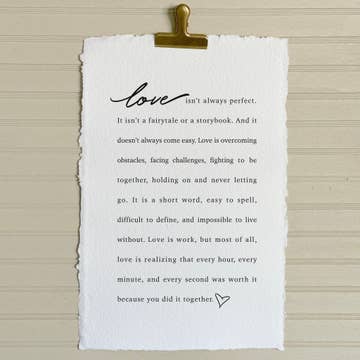 love isn't always perfect.
It isn't a fairytale or a storybook. And it
doesn't always come easy. Love is overcoming
obstacles, facing challenges, fighting to be
together, holding on and never letting
go. It is a short word, easy to spell,
difficult to define, and impossible to live
without. Love is work, but most of all,
love is realizing that every hour, every
minute, and every second was worth it
because you did it together.